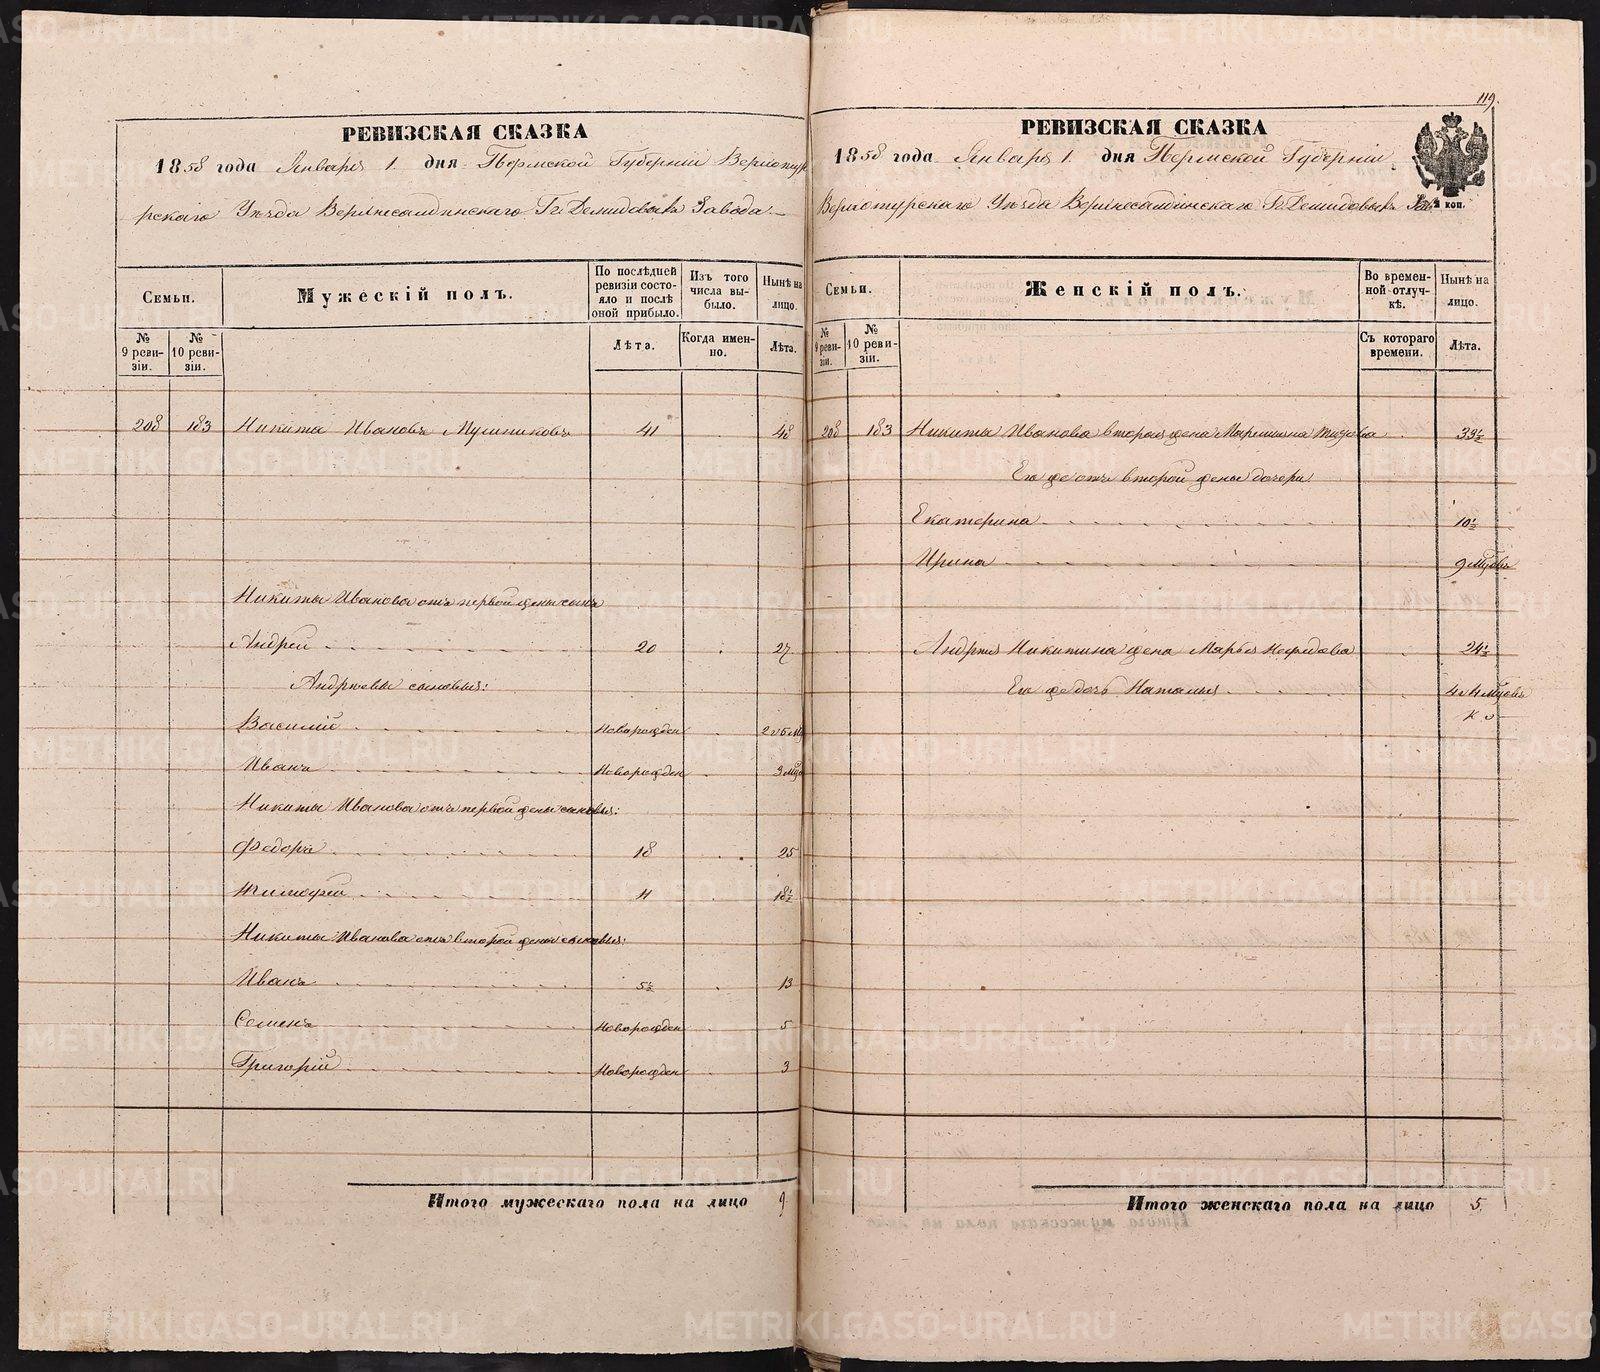 119.
РЕВИЗСКАЯ СКАЗКА
1858 года Января 1. дня Пермской Губерніи Верхотур
рскаго Уѣзда Верхнесалдинскаго Гг. Демидовыхъ Завода.
Семьи.
Мужескій полъ.
По послѣдней ревизіи состояло и послѣ оной прибыло.
Изъ того числа выбыло.
Нынѣ на лицо.
№ 9 ревизіи.
№ 10 ревизіи.
Лѣта.
Когда именно.
Лѣта.
208 183 Никита Ивановъ 41 48
Никиты Иванова отъ первой жены сынъ
Андрей 20 27
Андреевы сыновья:
Василій новорожден 2 и 6 м
Иванъ новорожден 3 мѣс
Никиты Иванова отъ первой жены сыновья:
Федоръ 18 25
Тимофей 11 18½
Никиты Иванова отъ второй жены сыновья:
Иванъ 5½ 13
Семенъ новорожден 5
Григорій новорожден 3
Итого мужескаго пола на лицо 9
РЕВИЗСКАЯ СКАЗКА
1858 года Января 1. дня Пермской Губерніи
Верхотурскаго Уѣзда Верхнесалдинскаго Гг. Демидовыхъ Зав.
коп.
Семьи.
Женскій полъ.
Во временной отлучкѣ.
Нынѣ на лицо.
№ 9 ревизіи.
№ 10 ревизіи.
Съ котораго времени.
Лѣта.
208 183 Никиты Иванова вторая жена Маремьяна Титова 33½
Его же отъ второй жены дочери
Екатерина 10½
Ирина 9 мѣсяцовъ
Андрея Никитина жена Марья 24½
Его же дочь Наталья 4 и 4 мѣсяцовъ
Итого женскаго пола на лицо 5.
METRIKI.GASO-URAL.RU